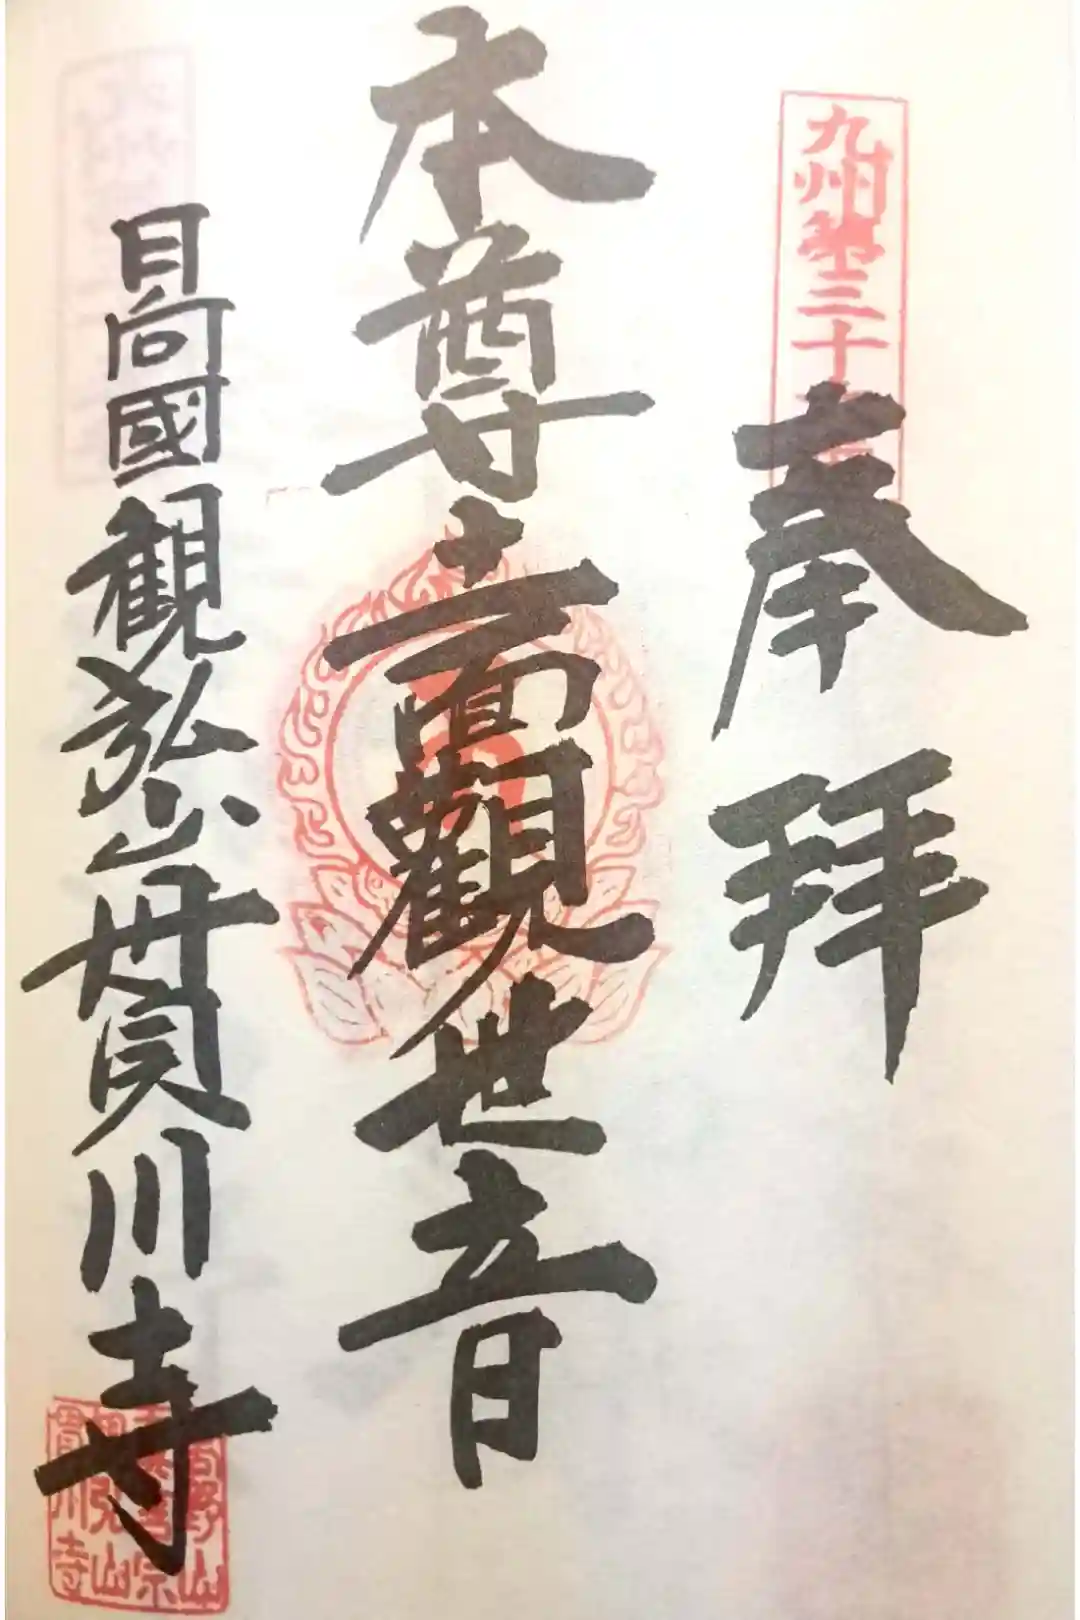 九州第三十
奉拝
本尊十一面觀世音
日向國観弘山貫川寺
高野山
真言宗
観弘山
貫川寺